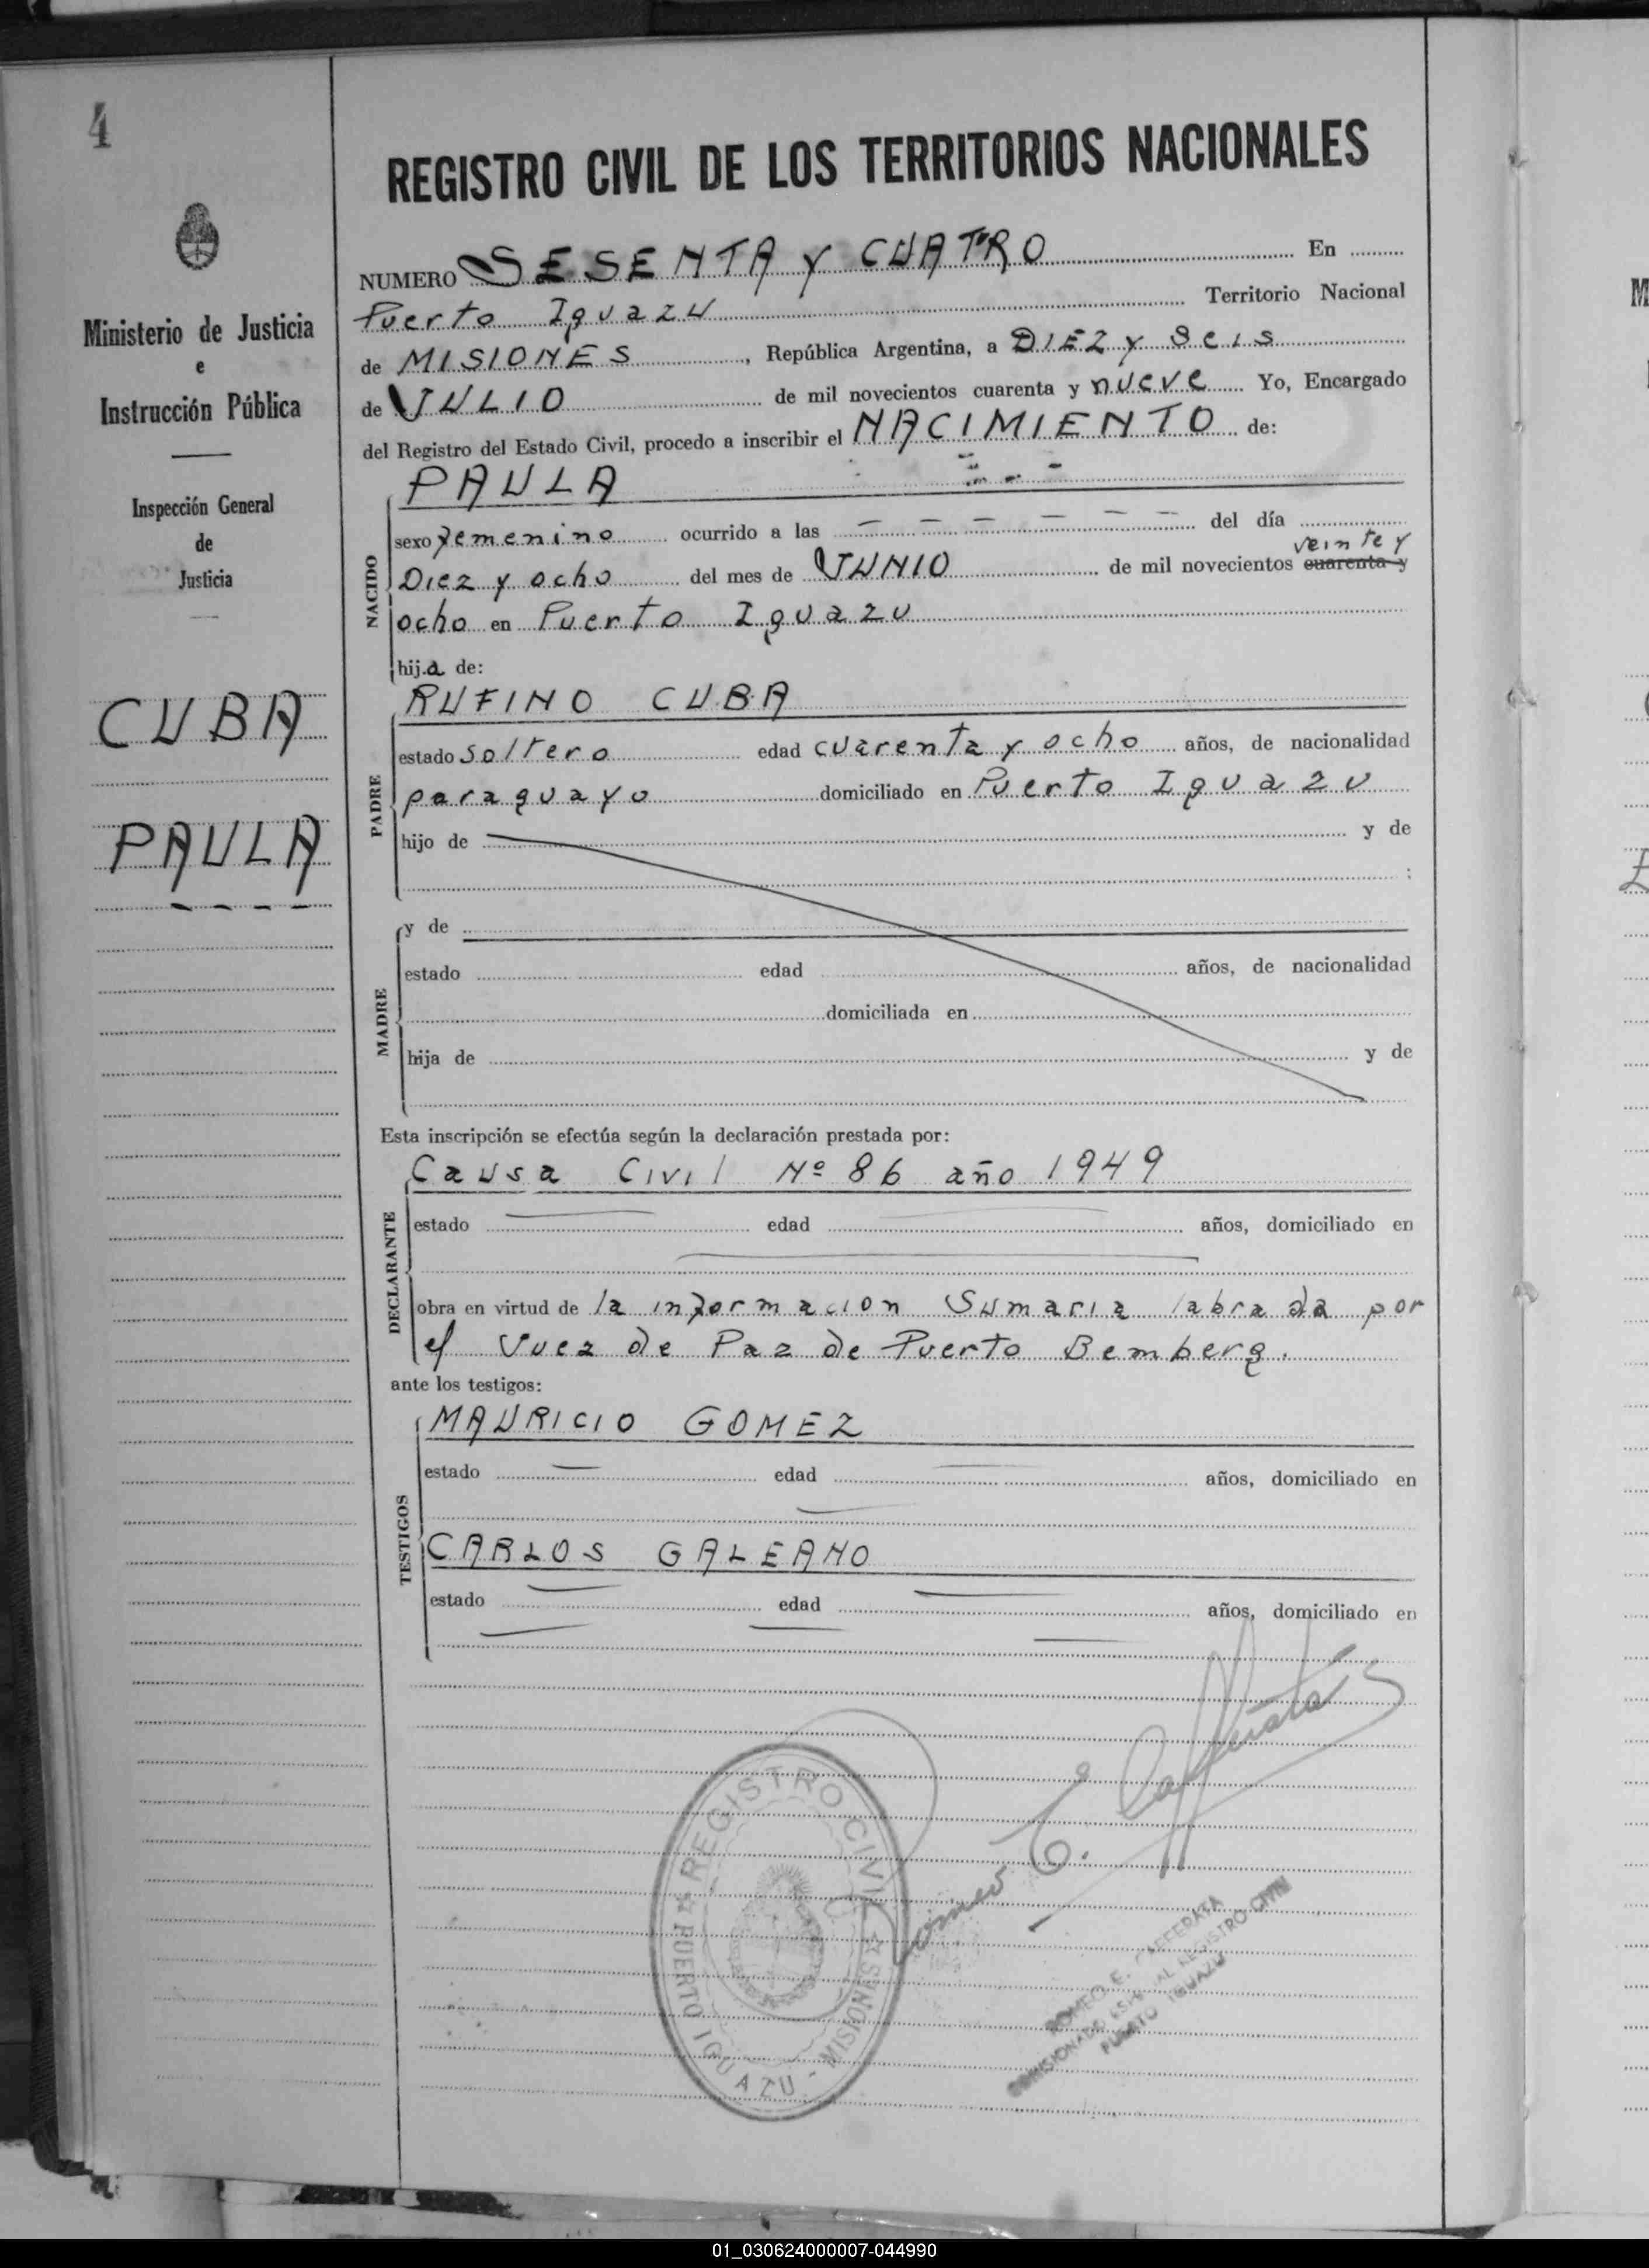 4
REGISTRO CIVIL DE LOS TERRITORIOS NACIONALES
Ministerio de Justicia
e
Instrucción Pública
Inspección General
de
Justicia
CUBA
PAULA
NUMERO SESENTA y CUATRO En
Puerto Iguazu Territorio Nacional
de MISIONES, República Argentina, a DIEZ y Seis
de JULIO de mil novecientos cuarenta y nueve Yo, Encargado
del Registro del Estado Civil, procedo a inscribir el NACIMIENTO de:
NACIDO
PAULA
sexo femenino ocurrido a las — — — — — — del día
veinte y
Diez y ocho del mes de JUNIO de mil novecientos cuarenta y
ocho en Puerto Iguazu
hija de:
PADRE
RUFINO CUBA
estado soltero edad cuarenta y ocho años, de nacionalidad
paraguayo domiciliado en Puerto Iguazu
hijo de y de
:
MADRE
y de
estado edad años, de nacionalidad
domiciliada en
hija de y de
Esta inscripción se efectúa según la declaración prestada por:
DECLARANTE
Causa Civil Nº 86 año 1949
estado edad años, domiciliado en
obra en virtud de la informacion Sumaria labrada por
el Juez de Paz de Puerto Bemberg.
ante los testigos:
TESTIGOS
MAURICIO GOMEZ
estado edad años, domiciliado en
CARLOS GALEANO
estado edad años, domiciliado en
Romeo E. Cafferata
REGISTRO CIVIL
PUERTO IGUAZU - MISIONES
ROMEO E. CAFFERATA
COMISIONADO ESPECIAL REGISTRO CIVIL
PUERTO IGUAZU
01_030624000007-044990